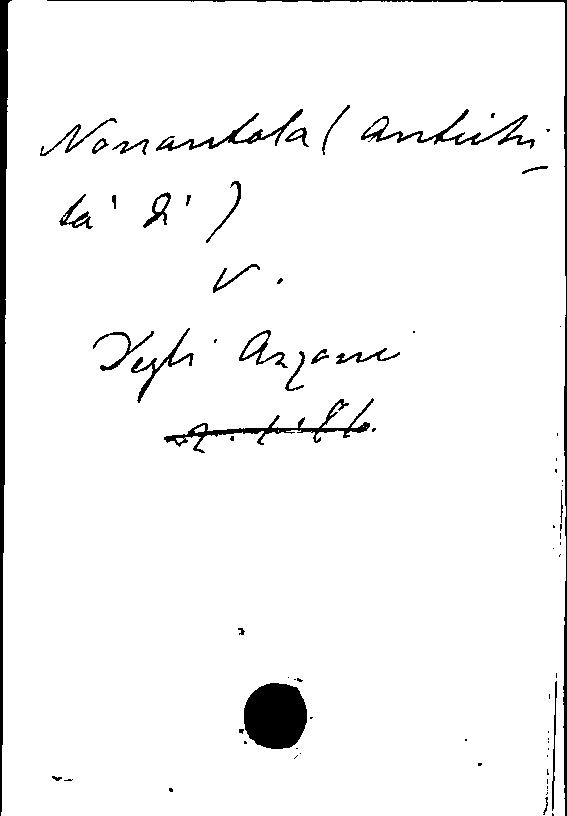 Nonantola (Antichi-
tà di)
V.
Degli Azzoni